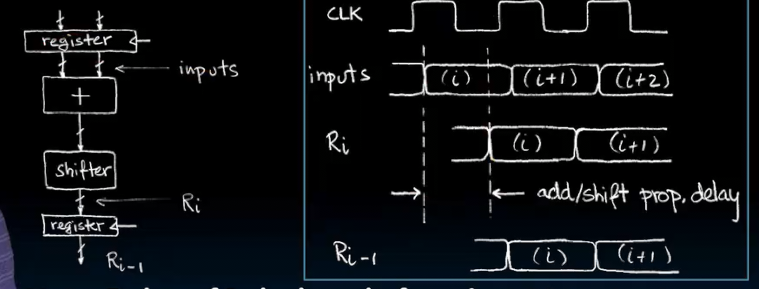 register
inputs
+
shifter
Ri
register
Ri-1
CLK
inputs (i) (i+1) (i+2)
Ri (i) (i+1)
add/shift prop. delay
Ri-1 (i) (i+1)